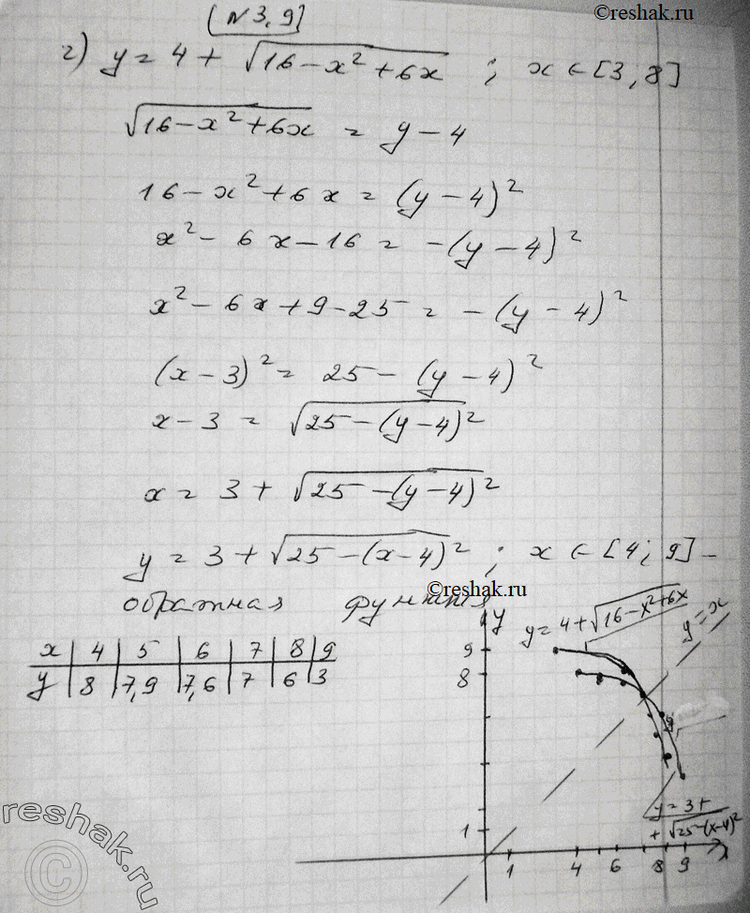 ©reshak.ru
[N 3,9]
г) y = 4 + √(16 - x² + 6x) ; x ∈ [3, 8]
√(16 - x² + 6x) = y - 4
16 - x² + 6x = (y - 4)²
x² - 6x - 16 = -(y - 4)²
x² - 6x + 9 - 25 = -(y - 4)²
(x - 3)² = 25 - (y - 4)²
x - 3 = √(25 - (y - 4)²)
x = 3 + √(25 - (y - 4)²)
y = 3 + √(25 - (x - 4)²) ; x ∈ [4; 9] -
обратная функция
©reshak.ru
x | 4 | 5 | 6 | 7 | 8 | 9
y | 8 | 7,9 | 7,6 | 7 | 6 | 3
y
y = 4 + √(16 - x² + 6x)
y = x
9
8
1
y = 3 +
+ √(25 - (x - 4)²)
1 4 6 8 9 x
reshak.ru
©
reshak.ru